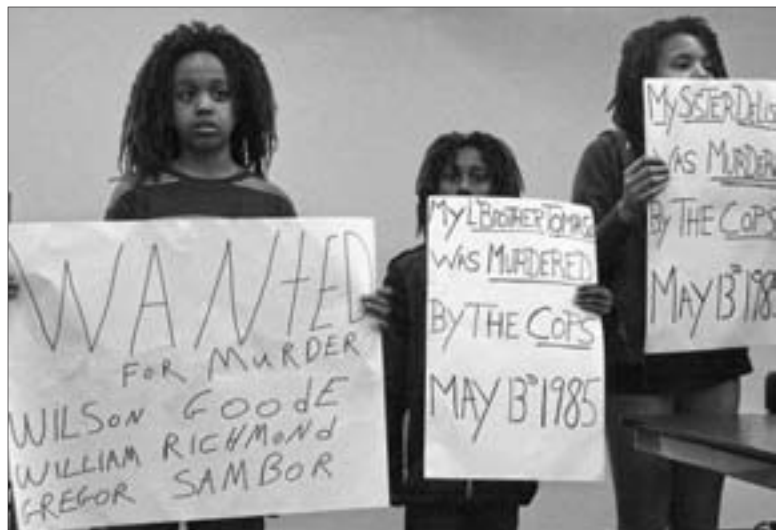 WANTED
FOR MURDER
WILSON GOODE
WILLIAM RICHMOND
GREGOR SAMBOR
MY L BROTHER TOMASO
WAS MURDERED
BY THE COPS
MAY 13TH 1985
MY SISTER
WAS MURDERE
BY THE COPS
MAY 13TH 198